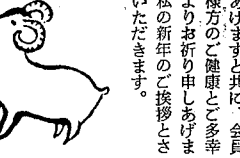 あげますと共に、会員
様方のご健康とご多幸
よりお祈り申しあげま
私の新年のご挨拶とさ
いただきます。